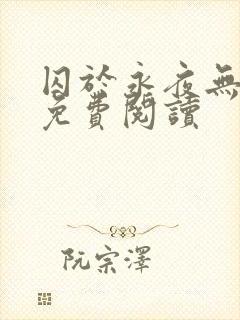 囚於永夜無
免費閱讀
阮宗澤